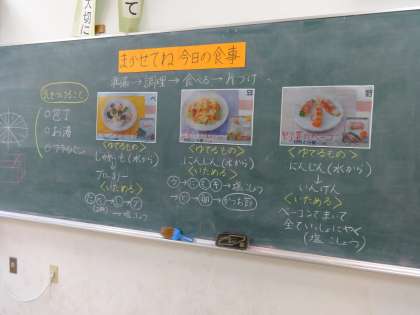 大切に
て
まかせてね 今日の食事
準備→調理→食べる→片づけ
気をつけること
○包丁
○お湯
○フライパン
<ゆでるもの>
じゃがいも(水から)
ブロッコリー
<いためる>
→塩こしょう
<ゆでるもの>
にんじん(水から)
<いためる>
→塩こしょう
→卵→かつお節
<ゆでるもの>
にんじん(水から)
↓
いんげん
<いためる>
ベーコンでまいて
全ていっしょにやく
(塩こしょう)